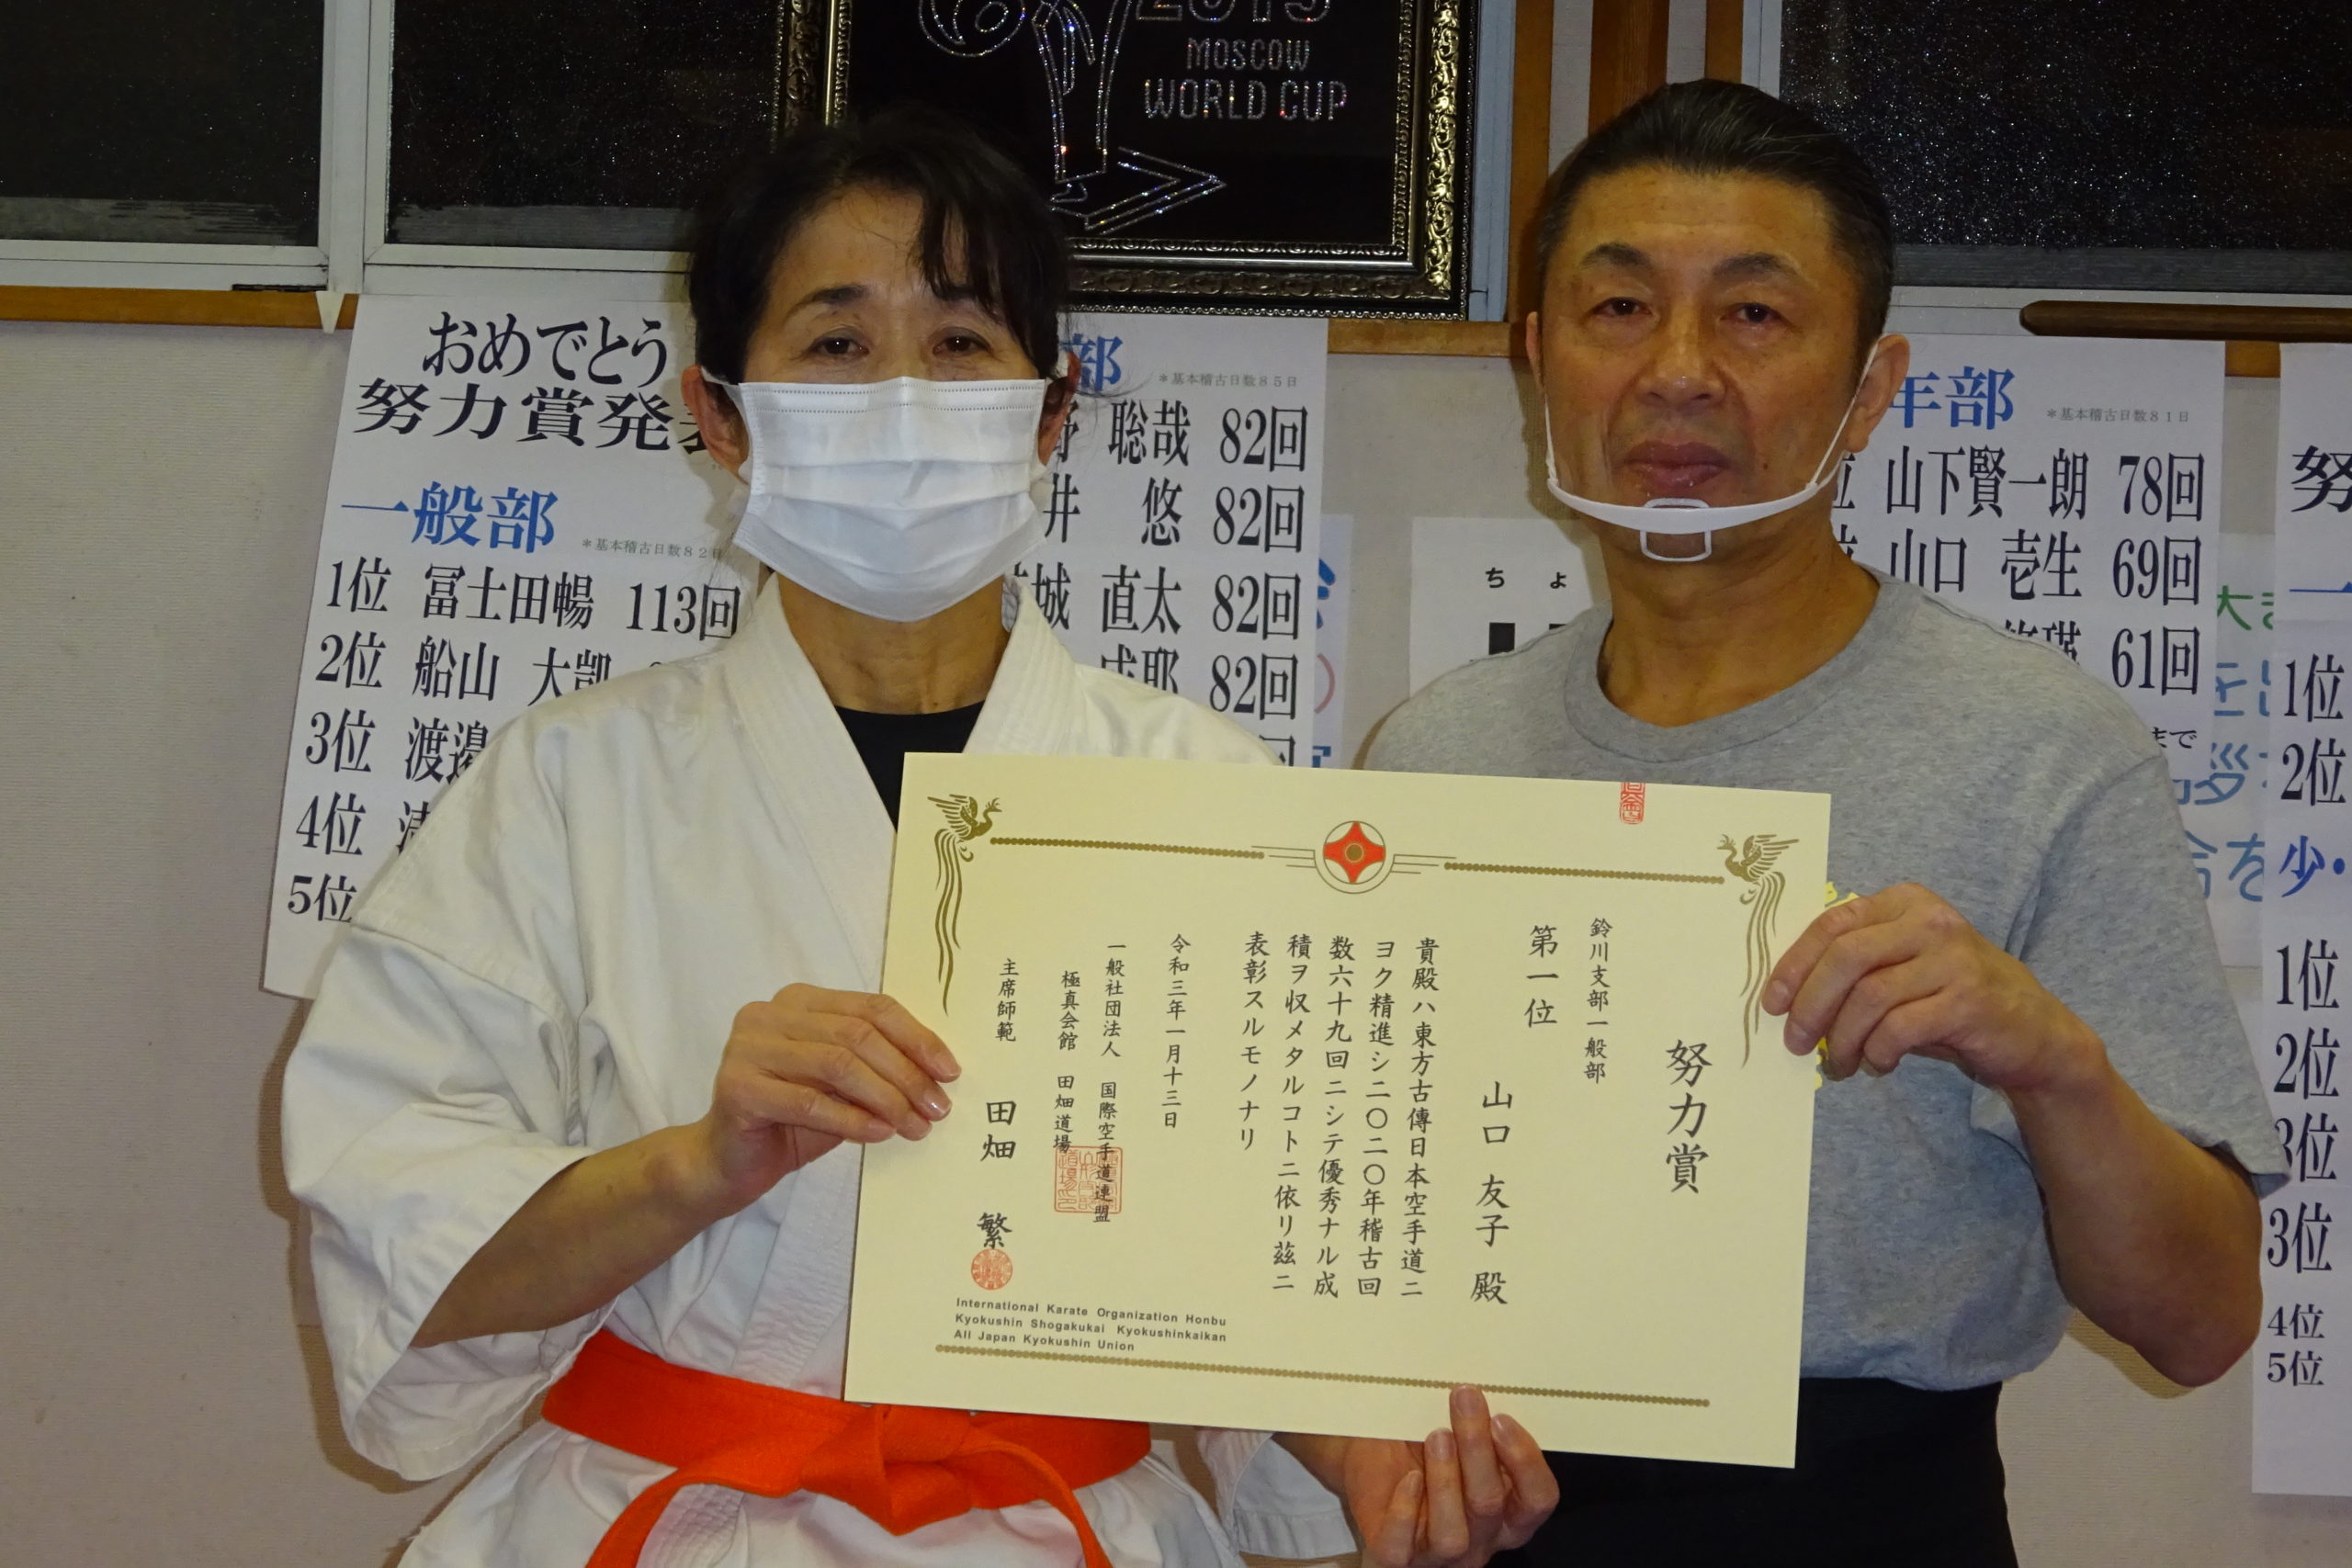 MOSCOW
WORLD CUP
おめでとう
努力賞発
一般部
＊基本稽古日数８２日
1位 冨士田暢 113回
2位 船山 大凱
3位 渡邉
4位
5位
部
＊基本稽古日数８５日
聡哉 82回
井 悠 82回
城 直太 82回
82回
ちょ
年部
＊基本稽古日数８１日
位 山下賢一朗 78回
位 山口 壱生 69回
61回
まで
努
1位
2位
少・
1位
2位
3位
3位
4位
5位
努力賞
鈴川支部一般部
第一位
山口 友子 殿
貴殿ハ東方古傳日本空手道ニ
ヨク精進シ二〇二〇年稽古回
数六十九回ニシテ優秀ナル成
積ヲ収メタルコトニ依リ茲ニ
表彰スルモノナリ
令和三年一月十三日
一般社団法人 国際空手道連盟
極真会館 田畑道場
主席師範 田畑 繁
International Karate Organization Honbu
Kyokushin Shogakukai Kyokushinkaikan
All Japan Kyokushin Union